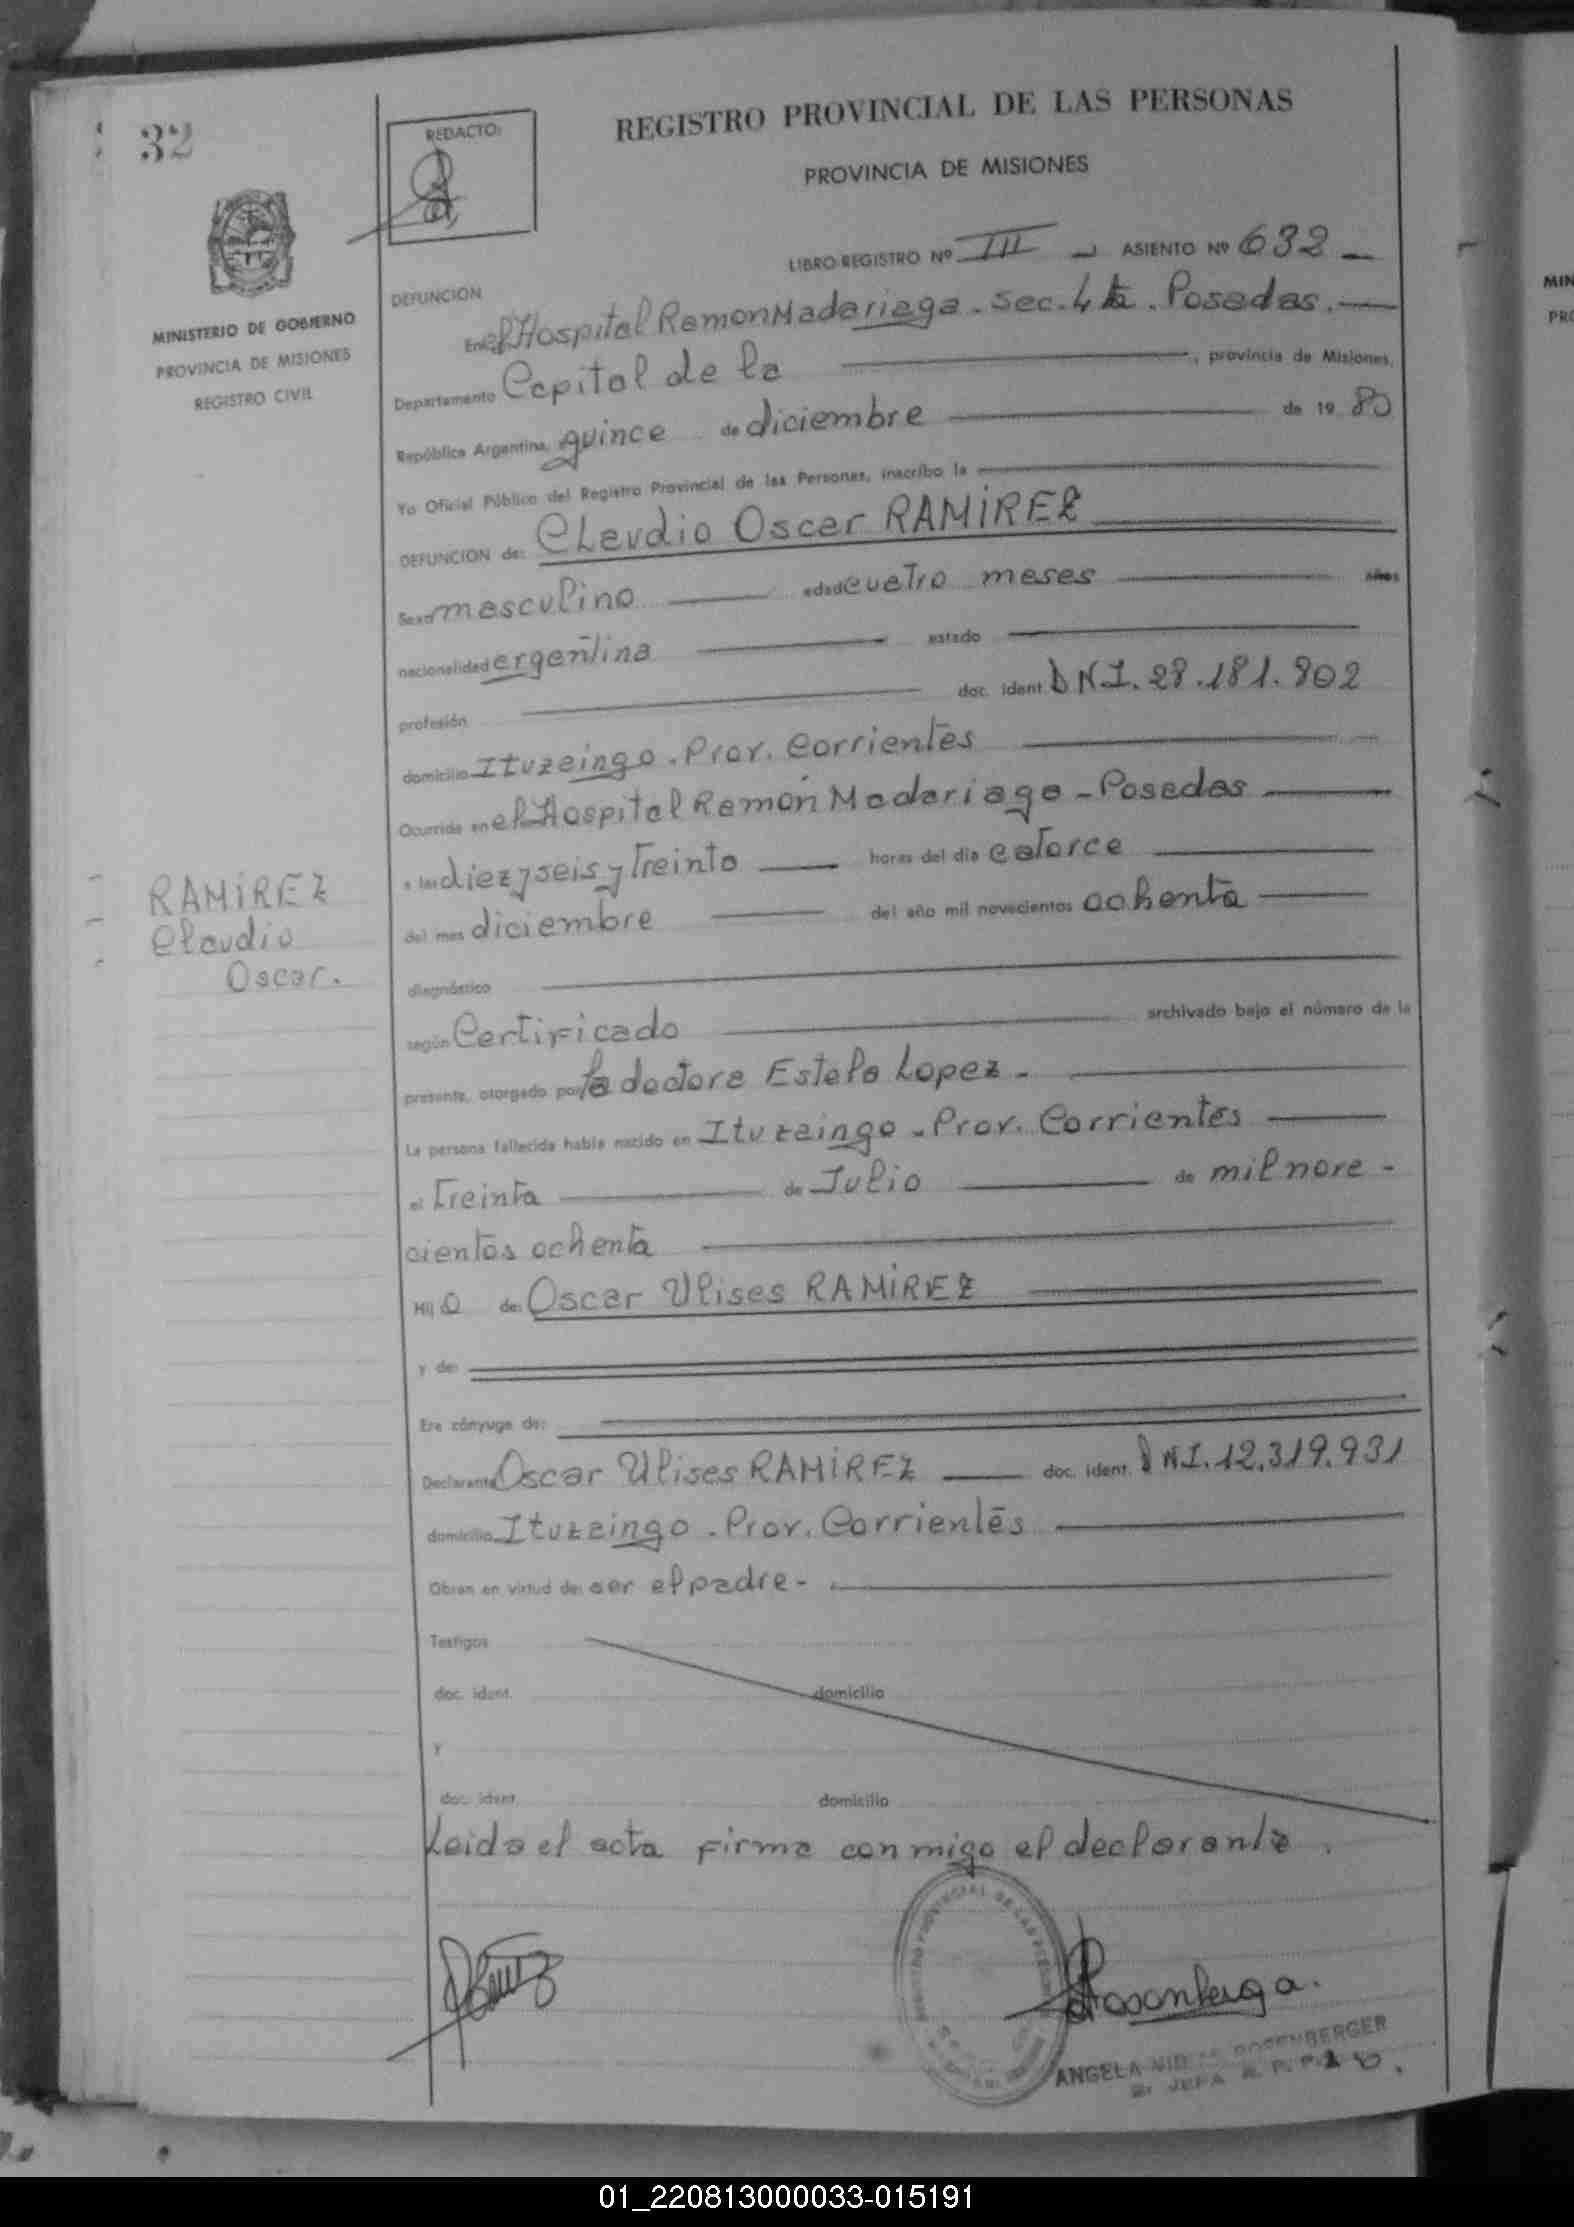 32
REDACTO:
REGISTRO PROVINCIAL DE LAS PERSONAS
PROVINCIA DE MISIONES
LIBRO REGISTRO Nº III - ASIENTO Nº 632 -
MINISTERIO DE GOBIERNO
PROVINCIA DE MISIONES
REGISTRO CIVIL
DEFUNCION
En el Hospital Ramon Madariaga - Sec. 4ta. Posadas.
Departamento Capital de la , provincia de Misiones,
República Argentina, quince de diciembre de 19 80
Yo Oficial Público del Registro Provincial de las Personas, inscribo la
DEFUNCION de: Claudio Oscar RAMIREZ
Sexo masculino edad cuatro meses años
nacionalidad argentina estado
profesión doc. ident. DNI. 28.181.802
domicilio Ituzaingo. Prov. Corrientes
Ocurrida en el Hospital Ramón Madariaga - Posadas
a las diez y seis y treinta horas del día catorce
del mes diciembre del año mil novecientos ochenta
diagnóstico
según Certificado archivado bajo el número de la
presente, otorgado por la doctora Estela Lopez -
La persona fallecida había nacido en Ituzaingo - Prov. Corrientes
el treinta de Julio de mil nove -
cientos ochenta
Hij o de: Oscar Ulises RAMIREZ
y de:
Era cónyuge de:
Declarante Oscar Ulises RAMIREZ doc. ident. DNI. 12.319.931
domicilio Ituzaingo. Prov. Corrientes
Obran en virtud de: ser el padre -
RAMIREZ
Claudio
Oscar.
Testigos
doc. ident. domicilio
y
doc. ident. domicilio
Leida el acta firma conmigo el declarante.
REGISTRO PROVINCIAL DE LAS PERSONAS
ANGELA ROSENBERGER
JEFA R. P. P.
01_220813000033-015191